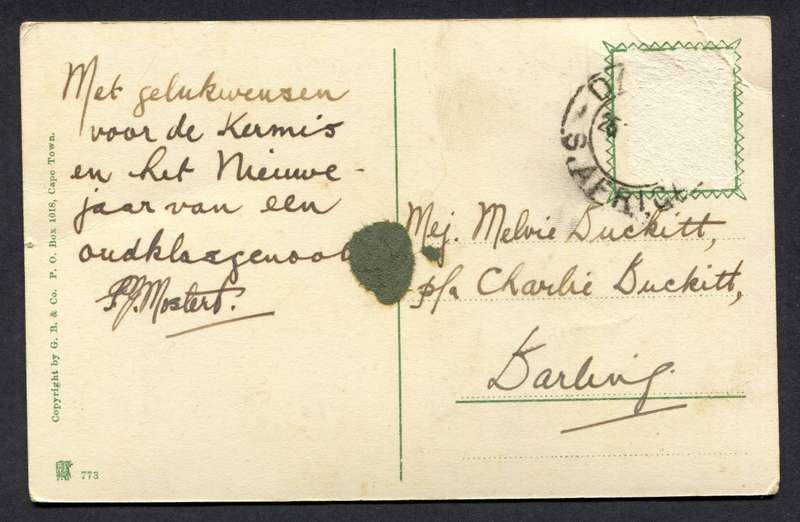 Met gelukwensen
voor de Kermis
en het Nieuwe-
jaar van een
oudklasgenoot
P.J. Mostert.
Copyright by G. B. & Co. P. O. Box 1018, Cape Town.
773
S. AFRICA
Mej. Melvie Duckitt,
p/a Charlie Duckitt,
Darling.